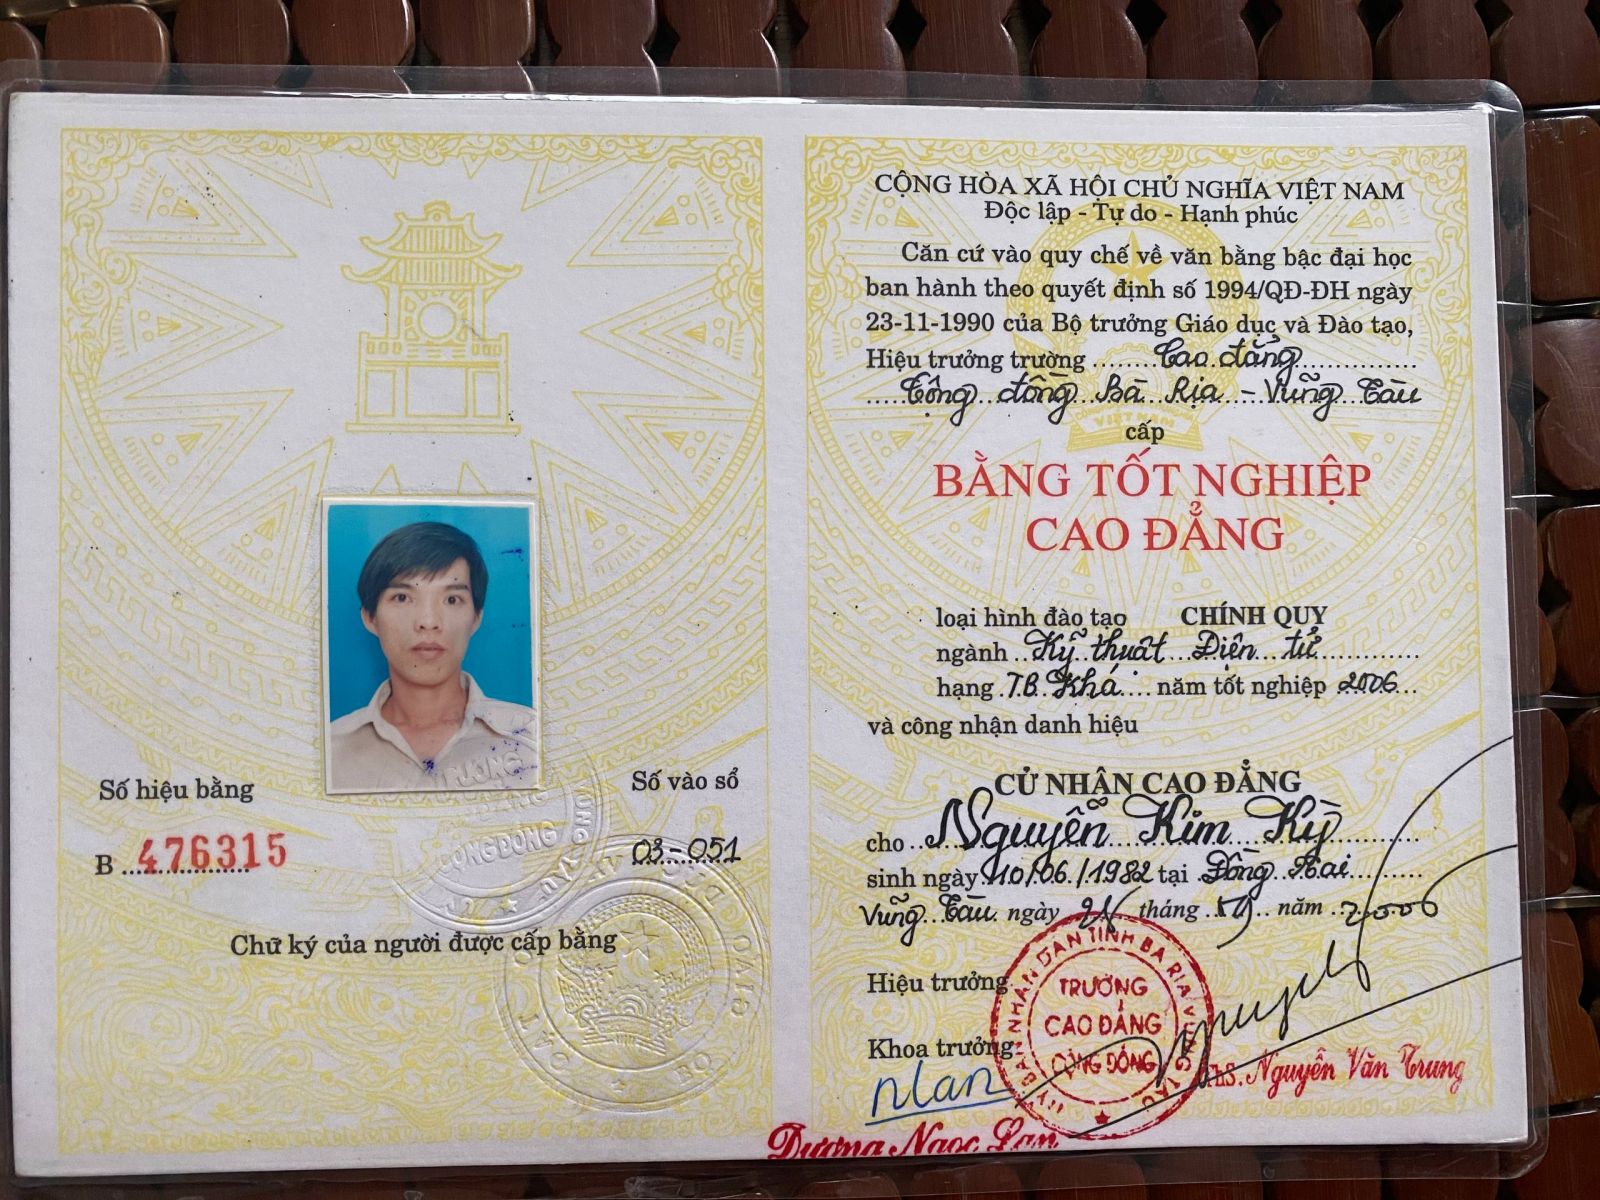 Số hiệu bằng
B 476315
Số vào sổ
03-051
Chữ ký của người được cấp bằng
TRƯỜNG
CỘNG ĐỒNG
CỘNG HÒA XÃ HỘI CHỦ NGHĨA VIỆT NAM
Độc lập - Tự do - Hạnh phúc
Căn cứ vào quy chế về văn bằng bậc đại học
ban hành theo quyết định số 1994/QĐ-ĐH ngày
23-11-1990 của Bộ trưởng Giáo dục và Đào tạo,
Hiệu trưởng trường Cao đẳng
Cộng đồng Bà Rịa - Vũng Tàu
cấp
BẰNG TỐT NGHIỆP
CAO ĐẲNG
loại hình đào tạo CHÍNH QUY
ngành Kỹ thuật Điện tử
hạng T.B. Khá năm tốt nghiệp 2006
và công nhận danh hiệu
CỬ NHÂN CAO ĐẲNG
cho Nguyễn Kim Kỳ
sinh ngày 10/06/1982 tại Đồng Nai
Vũng Tàu ngày tháng năm 2006
Hiệu trưởng
Khoa trưởng
nlan
ỦY BAN NHÂN DÂN TỈNH BÀ RỊA VŨNG TÀU
TRƯỜNG
CAO ĐẲNG
CỘNG ĐỒNG
ThS. Nguyễn Văn Trung
Dương Ngọc Lan